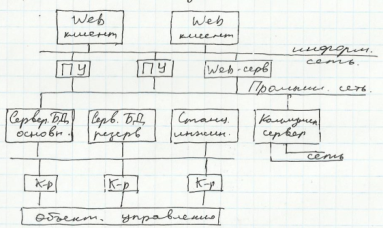 Web клиент
Web клиент
информ. сеть.
ПУ
ПУ
Web-серв
Промышл. сеть.
Сервер БД основн.
Серв. БД резерв
Станц. инжин.
Коммуник сервер
сеть
К-р
К-р
К-р
Объект управления